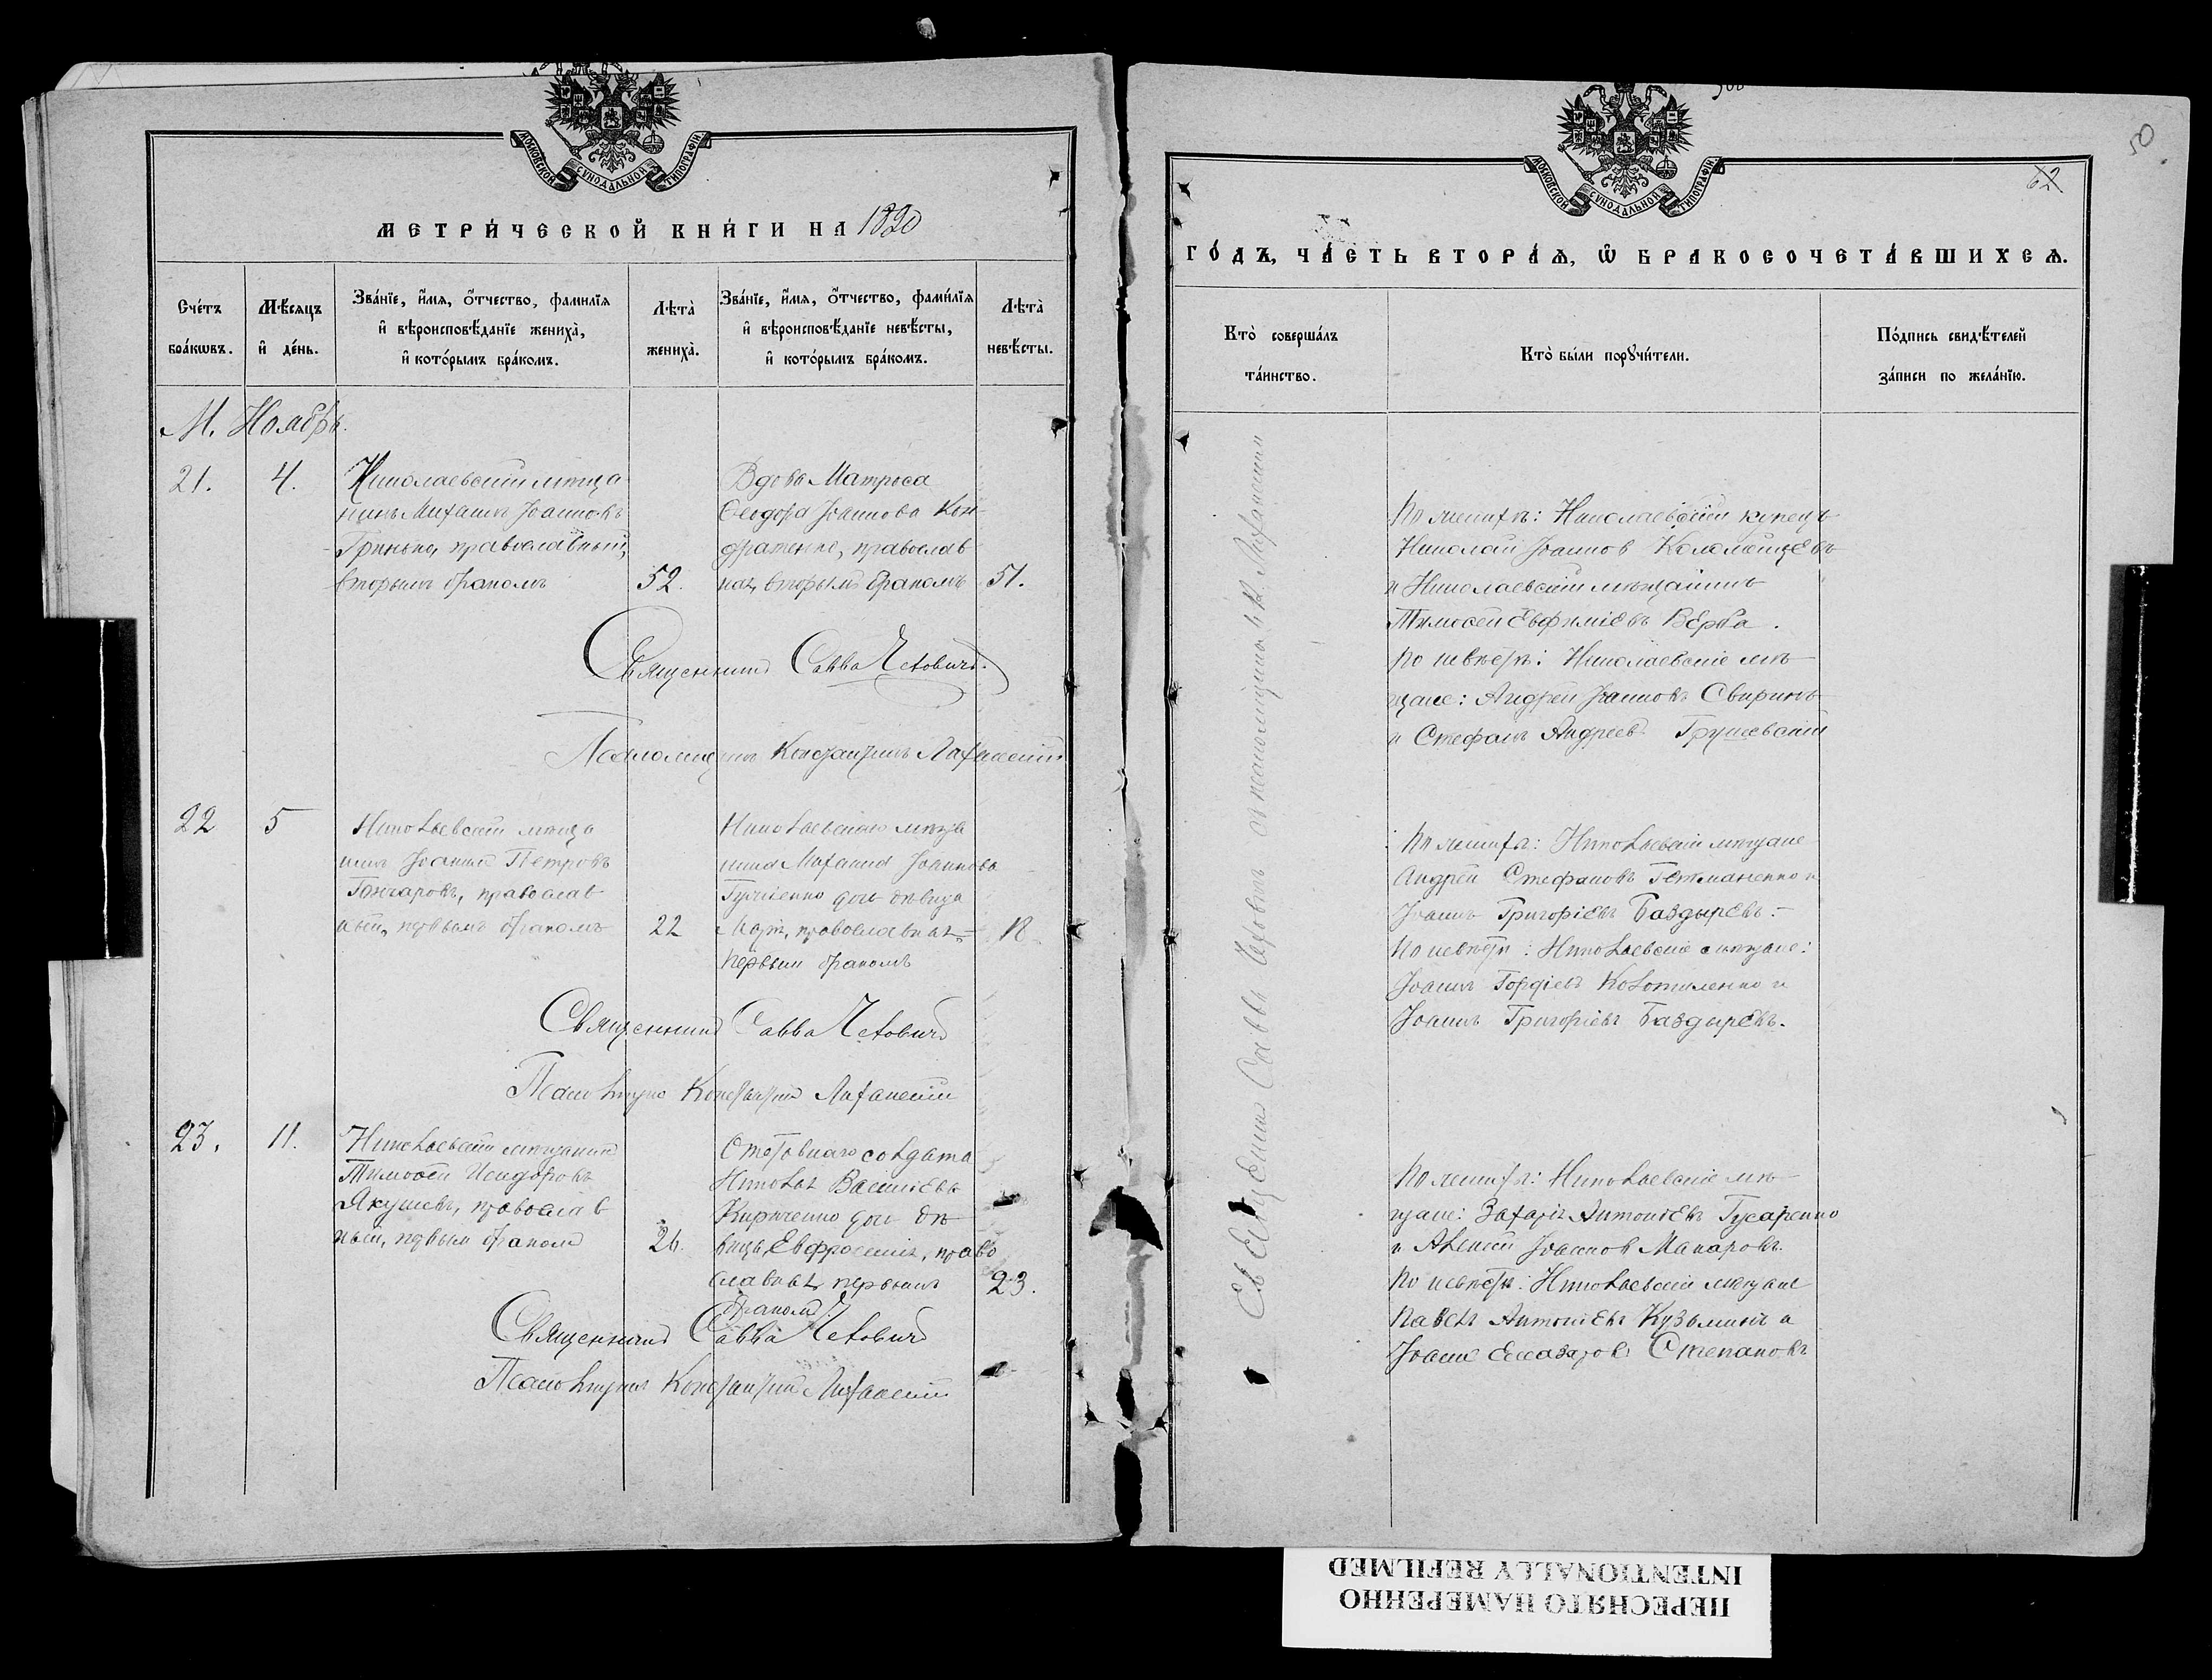 МОСКОВСКОЙ СѴНОДАЛЬНОЙ ТИПОГРАФІИ
МЕТРИ́ЧЕСКОЙ КНИ́ГИ НА 1890
Сче́тъ бра́кωвъ.
Мѣ́сяцъ и҆ де́нь.
Зва́нїе, и҆́мя, ѻ҆́тчество, фами́лїя
и҆ вѣроисповѣ́данїе жениха̀,
и҆ кото́рымъ бра́комъ.
Лѣта̀ жениха̀.
Зва́нїе, и҆́мя, ѻ҆́тчество, фами́лїя
и҆ вѣроисповѣ́данїе невѣ́сты,
и҆ кото́рымъ бра́комъ.
Лѣта̀ невѣ́сты.
М. Ноябрь.
21.
4.
Николаевскій мѣща
нинъ Михаилъ Іоанновъ
Гринько, православный,
вторымъ бракомъ
52.
Вдова Матроса
Ѳеодора Іоаннова Кон-
дратенко, православ
ная, вторымъ бракомъ
51.
Священникъ Савва Чехович.
Псаломщикъ Константинъ
22
5
Николаевскій мѣща
нинъ Іоаннъ Петровъ
Гончаровъ, православ
ный, первымъ бракомъ
22
Николаевскаго мѣща
нина Михаила Іоаннова
дочь дѣвица
православная,
первым бракомъ
18
Священникъ Савва Чехович
Псаломщикъ Константинъ
23.
11.
Николаевскій мѣщанинъ
Тимоѳей Исидоровъ
Якушевъ, православ
ный, первым бракомъ
26.
солдата
Николая Василіева
Кириченко дочь дѣ
вица Евфросинія, право
славная, первымъ
бракомъ
23.
Священникъ Савва Чехович
Псаломщикъ Константинъ
50
62
МОСКОВСКОЙ СѴНОДАЛЬНОЙ ТИПОГРАФІИ
ГО́ДЪ, ЧА́СТЬ ВТОРА́Ѧ, Ѽ БРАКОСОЧЕТА́ВШИХСѦ.
Кто̀ соверша́лъ
та́инство.
Кто̀ бы́ли порꙋчи́тели.
По́дпись свидѣ́телей
за́писи по жела́нїю.
Священникъ Савва Чеховичъ съ псаломщикомъ К.
По женихѣ: Николаевскій купецъ
Николай Іоаннов Коломойцевъ
и Николаевскій мѣщанинъ
Тимоѳей Евфиміевъ Верба.
По невѣстѣ: Николаевскіе мѣ-
щане: Андрей Іоанновъ Свиринъ
и Стефанъ Андреевъ Грушевскій
По женихѣ: Николаевскіе мѣщане
Андрей Стефановъ Гетманенко и
Іоаннъ Григоріевъ Баздыревъ.-
По невѣстѣ: Николаевскіе мѣщане:
Іоаннъ Гордіевъ и
Іоаннъ Григоріевъ Баздыревъ.
По женихѣ: Николаевскіе мѣ-
щане: Захарія Антоніевъ Гусаренко
и Алексій Іоаннов Макаровъ.
По невѣстѣ: Николаевскіе мѣщане
Павелъ Антоніевъ Кузьминъ и
Іоаннъ Елеазаровъ Степановъ
ПЕРЕСНЯТО НАМЕРЕННО
INTENTIONALLY REFILMED